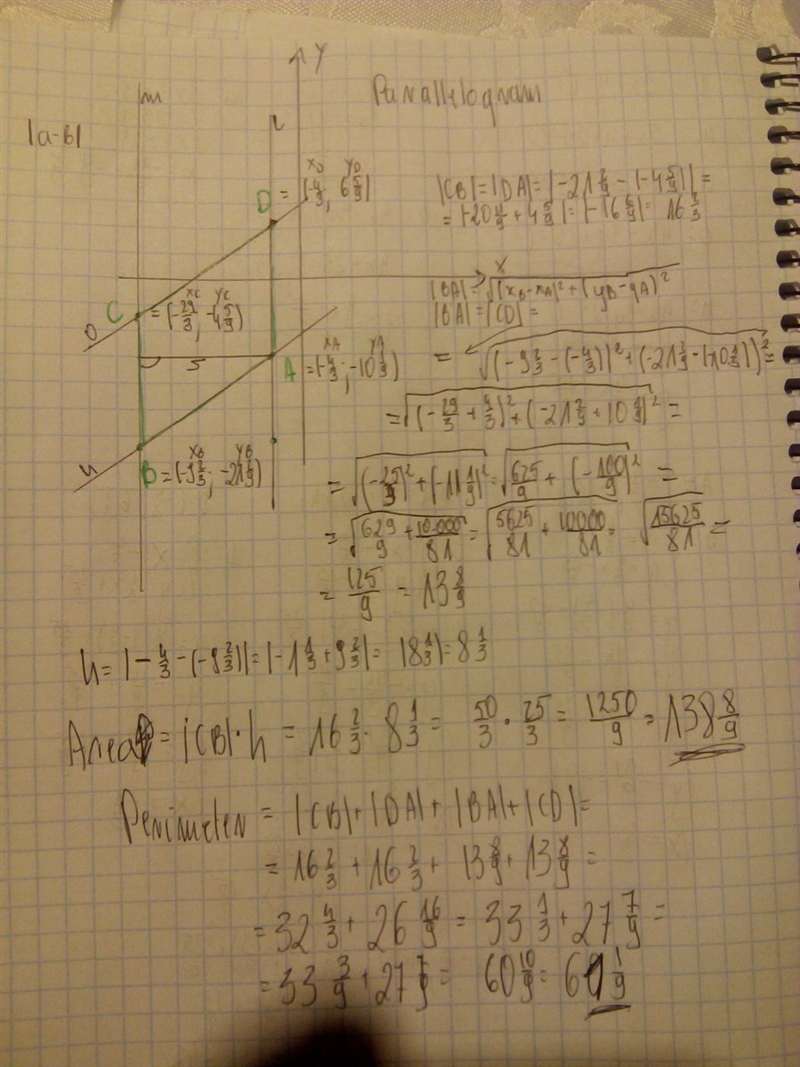 Parallelogram
Y
m
l
|a-b|
x_D y_D
D = (-4/3; 6 5/9)
|CB|=|DA|=|-21 2/9-(-4 5/9)|=
X
x_C y_C
C =(-29/3; -4 5/9)
|BA|=√((x_B-x_A)²+(y_B-y_A)²)
|BA|=|CD|=
x_A y_A
A =(-4/3; -10 1/9)
x_B y_B
B =(-9 2/3; -21 2/9)
=√((-29/3+4/3)²+(-21 2/9+10 1/9)²=
=√((-25/3)²+(-11 1/9)² = √(625/9+(-100/9)² =
=√(629/9+10.000/81)=√(5625/81+10000/81)= √(15625/81)=
=125/9=13 8/9
=|-1 1/3+9 2/3|= |8 1/3|=8 1/3
Area = |CB|·h = 16 2/3·8 1/3= 50/3·25/3=1250/9=138 8/9
Perimeter = |CB|+|DA|+|BA|+|CD|=
=16 2/3+16 2/3+13 8/9+13 8/9=
=32 4/3+26 16/9=33 1/3+27 7/9=
=33 3/9+27 7/9= 60 10/9=61 1/9